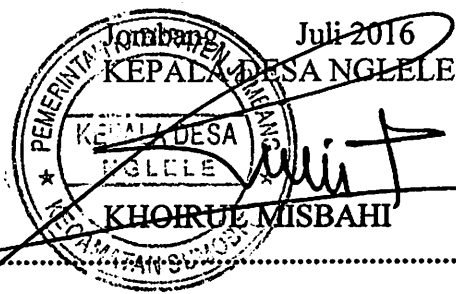 Jombang, Juli 2016
KEPALA DESA NGLELE
PEMERINTAH KABUPATEN JOMBANG
KEPALA DESA
NGLELE
KECAMATAN SUMOBITO
KHOIRUL MISBAHI